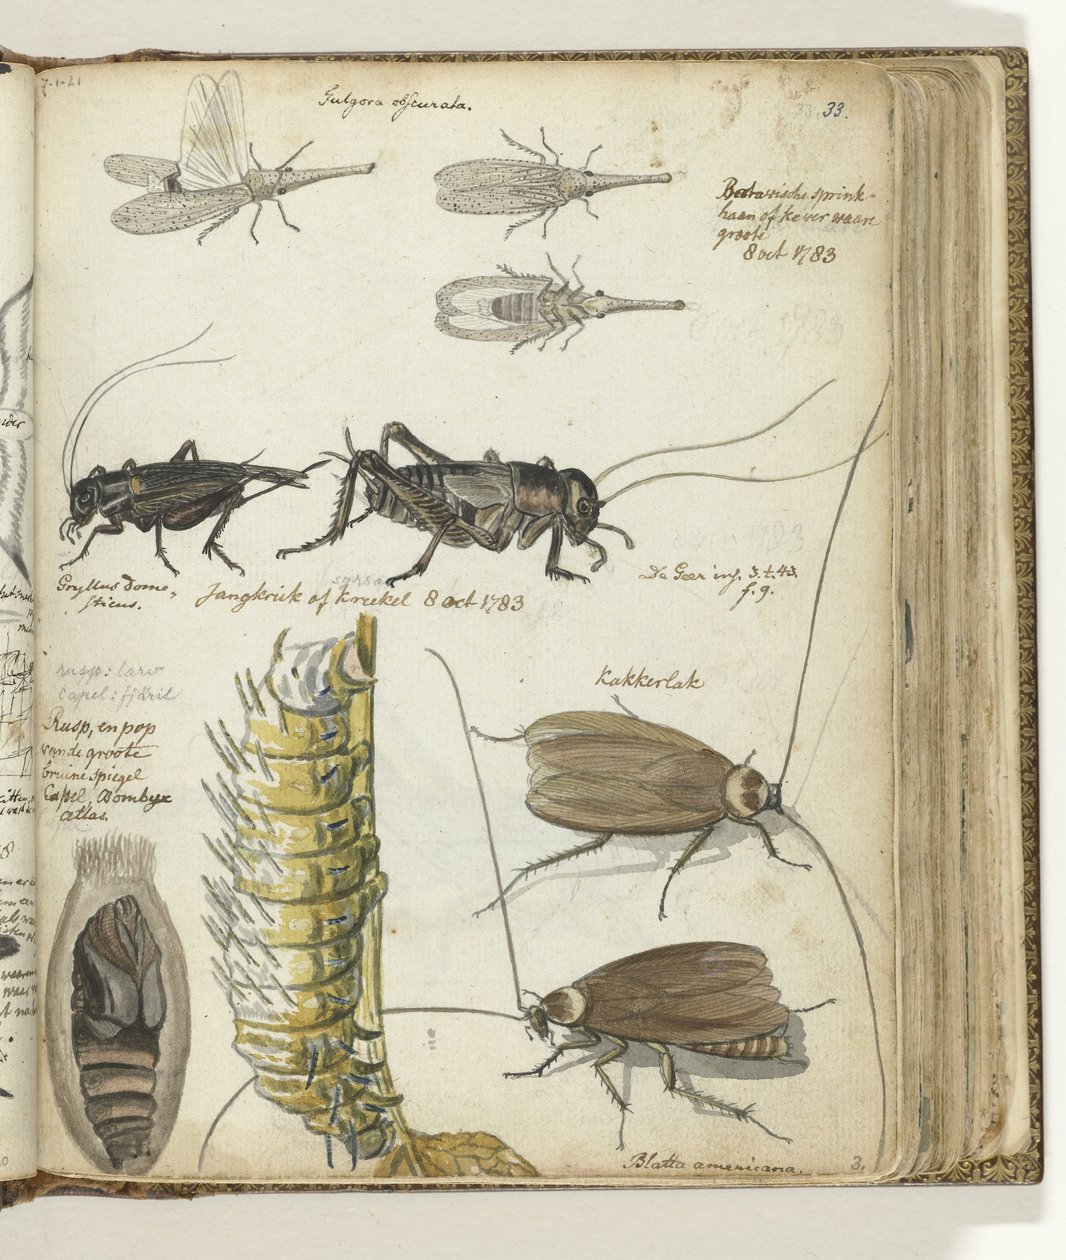 7-1-21
Fulgora obscurata.
33.
Batavische sprink-
haan of kever waare
groote
8 oct 1783
Gryllus dome-
sticus.
Jangkrik of Kreekel 8 oct 1783
De Geer ins. 3. t. 43.
f. 9.
rusp: larv
Capel: fjäril
Rusp, en pop
van de groote
bruine spiegel
Capel Bombyx
atlas.
Kakkerlak
Blatta americana.
3.